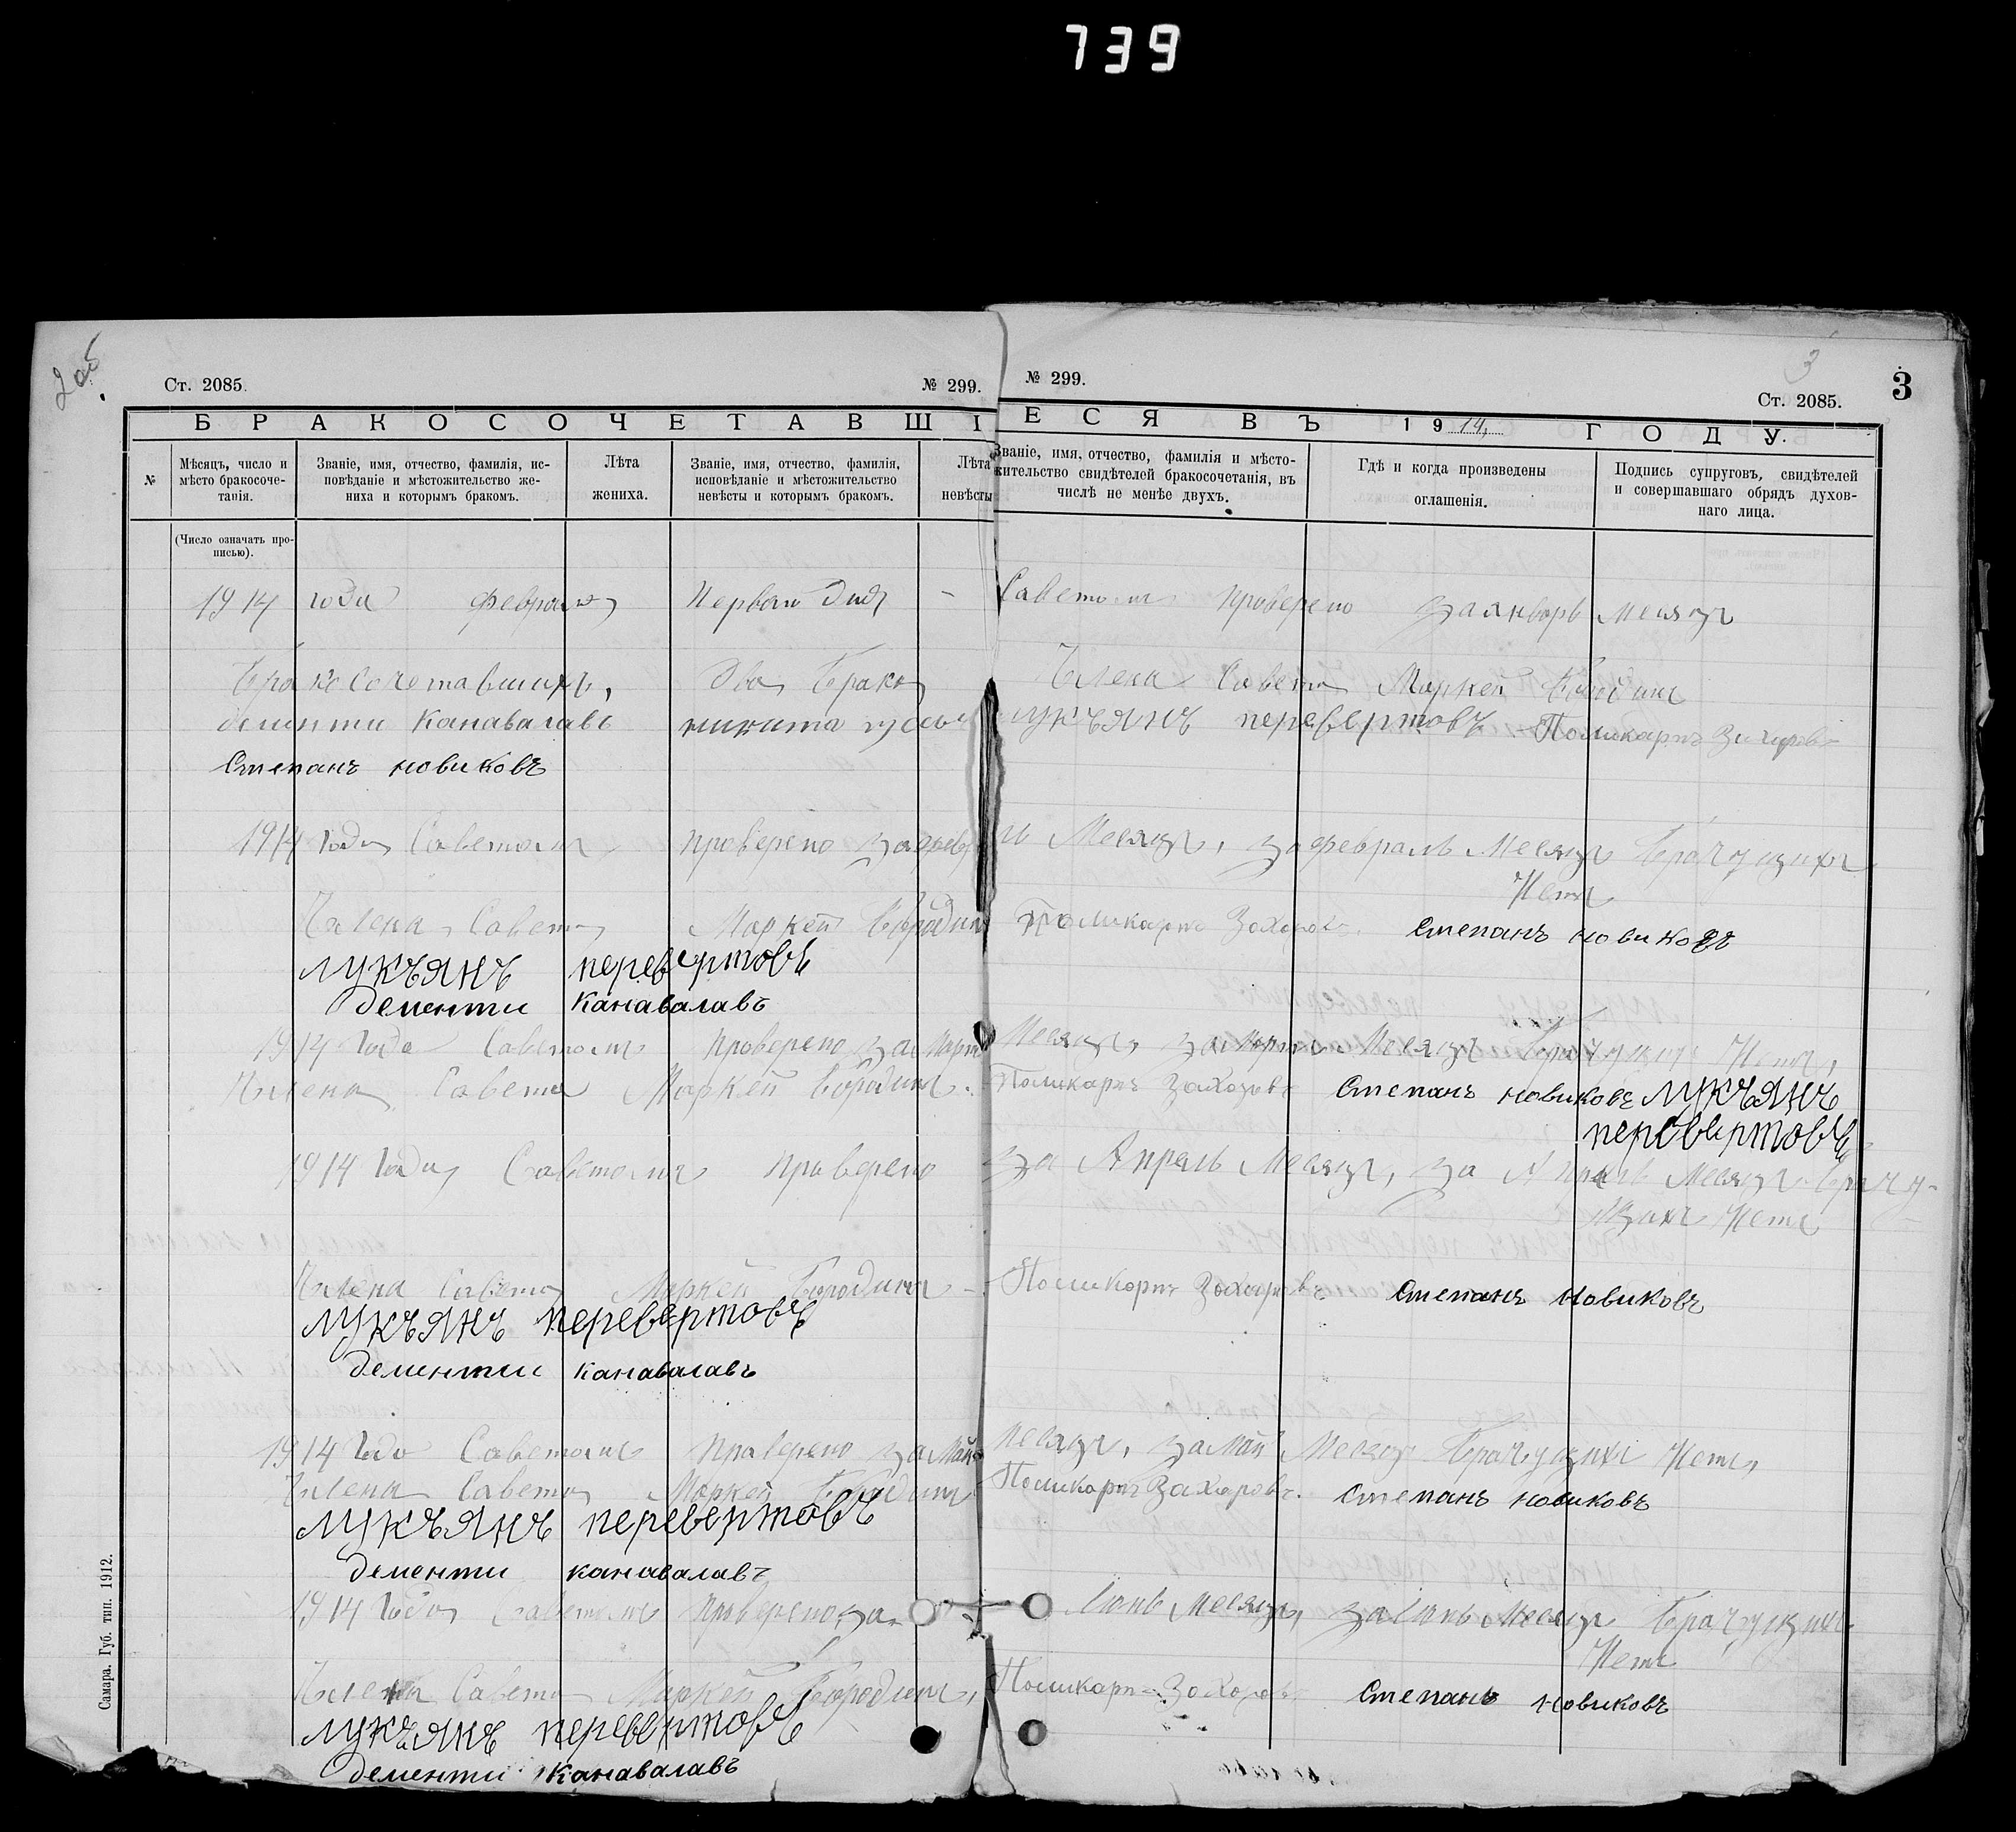 739
2об
3
3
Ст. 2085. № 299. № 299. Ст. 2085.
БРАКОСОЧЕТАВШІЕСЯ ВЪ 1914, ГОДУ.
№
Мѣсяцъ, число и
мѣсто бракосоче-
танія.
Званіе, имя, отчество, фамилія, ис-
повѣданіе и мѣстожительство же-
ниха и которымъ бракомъ.
Лѣта
жениха.
Званіе, имя, отчество, фамилія,
исповѣданіе и мѣстожительство
невѣсты и которымъ бракомъ.
Лѣта
невѣсты
Званіе, имя, отчество, фамилія и мѣсто-
жительство свидѣтелей бракосочетанія, въ
числѣ не менѣе двухъ.
Гдѣ и когда произведены
оглашенія.
Подпись супруговъ, свидѣтелей
и совершавшаго обрядъ духов-
наго лица.
(Число означать про-
писью).
1914 года февраля Первого дня - Советомъ проверено за январь месяцъ
два брака Члена Совета Маркей Бородинъ
дементи Канавалавъ никита лукъянъ перевертовъ Поликарпъ Захаровъ
Степанъ новиковъ
1914 Года Советомъ проверено за месяцъ, за февраль Месяцъ Брачущихъ
Нетъ
Члена Совета Маркей Бородинъ Поликарпъ Захаровъ. Степанъ новиковъ
лукъянъ перевертовъ
дементи Канавалавъ
1914 Года Советомъ проверено за Март Месяцъ, за мартъ Месяцъ Брачущихъ Нетъ,
Члена Совета Маркей Бородинъ. Поликарпъ Захаровъ Степанъ новиковъ лукъянъ
перевертовъ
1914 Года Советомъ проверено за Апрель Месяцъ, за Апрель Месяцъ Брачу-
щихъ Нетъ
Члена Совета Маркей Бородинъ - Поликарпъ Захаровъ Степанъ новиковъ
лукъянъ перевертовъ
дементи канавалавъ
1914 Года Советомъ Проверено за Май месяцъ, за май Месяцъ Брачущихъ Нетъ,
Члена Совета Маркей Бородинъ Поликарпъ Захаровъ. Степанъ новиковъ
лукъянъ перевертовъ
дементи канавалавъ
1914 Года Советомъ проверено за Июнь месяцъ, за Июнь Месяцъ Брачущихъ
Нетъ
Члена Совета Маркей Бородинъ, Поликарпъ Захаровъ Степанъ новиковъ
лукъянъ перевертовъ
дементи Канавалавъ
Самара. Губ. тип. 1912.